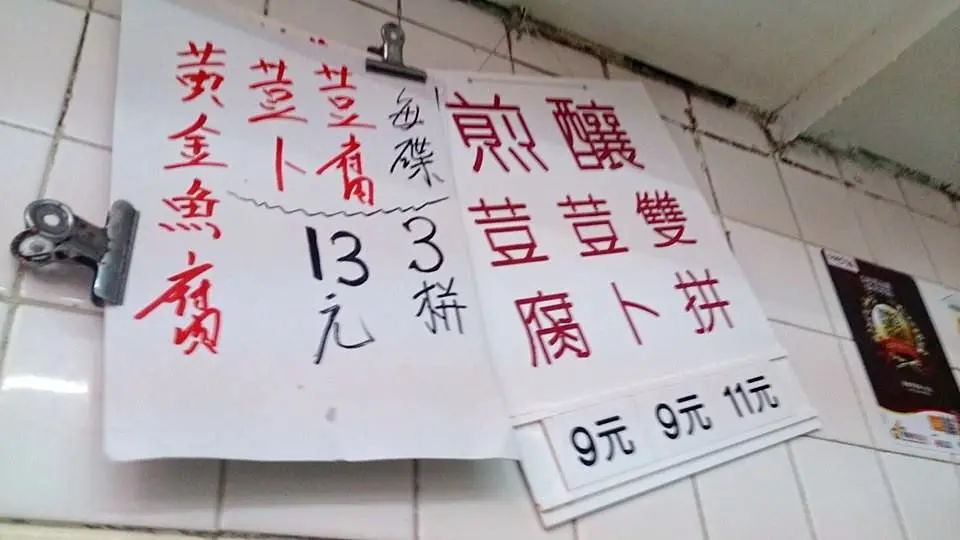 每碟3拼
荳腐13元
荳卜
黃金魚腐
雙拼
釀荳卜
煎荳腐
11元
9元
9元